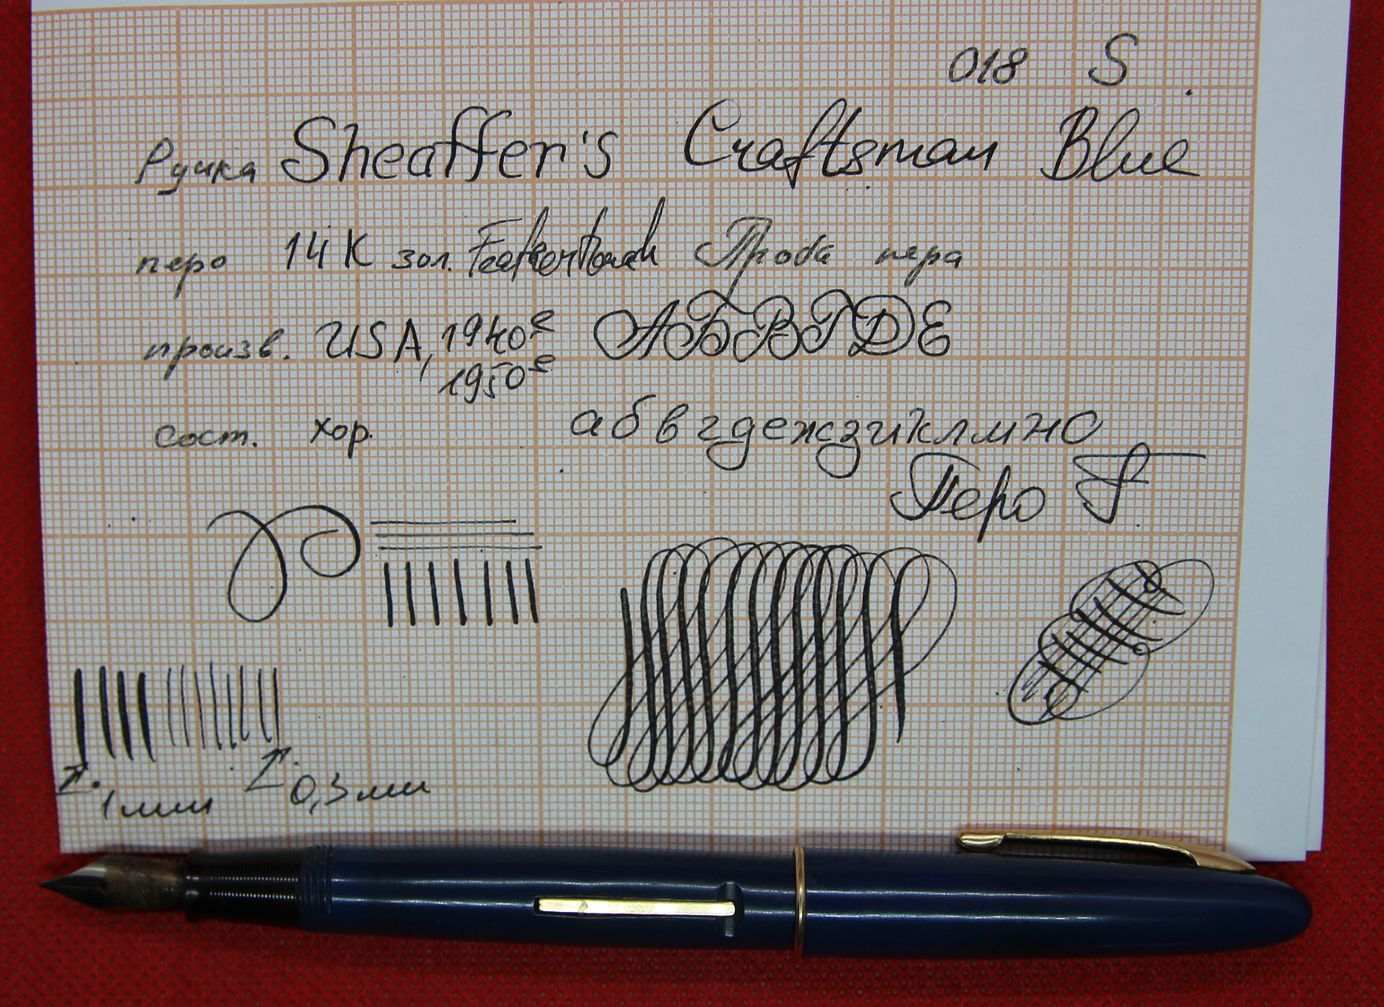 018 S
Ручка Sheaffer's Craftsman Blue
перо 14K зол. Feathertouch Проба пера
произв. USA, 1940е АБВГДЕ
1950е
сост. хор. абвгдежзиклмно
Перо F
1мм 0,3мм